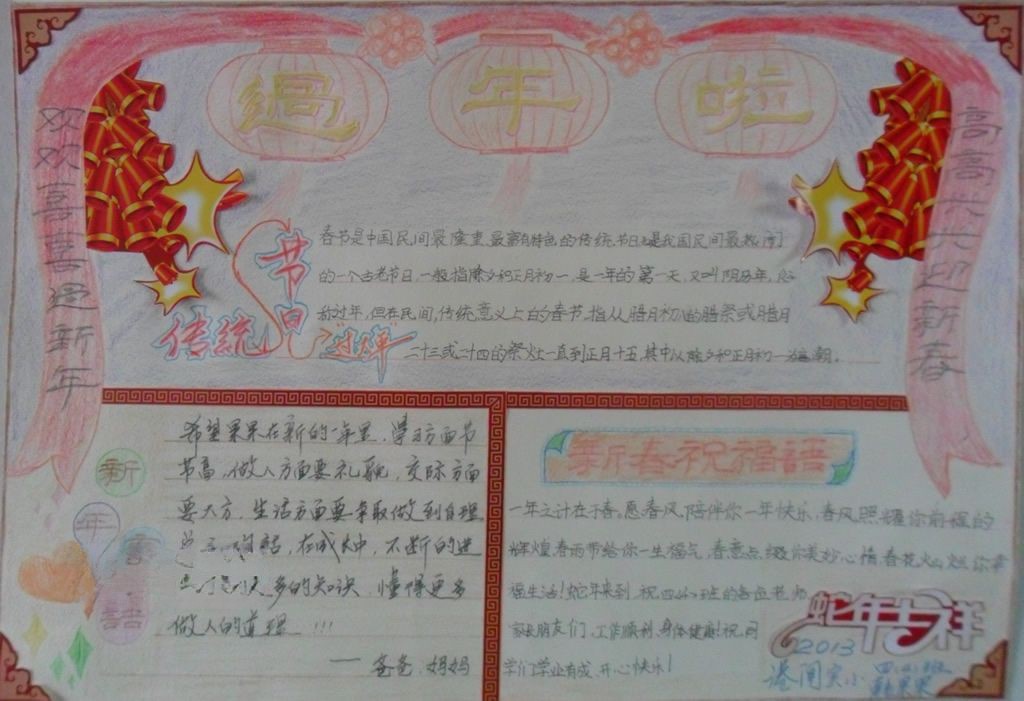 過年啦
欢欢喜喜迎新年
高高兴兴迎新春
传统节日"过年"
春节是中国民间最隆重、最富有特色的传统节日,也是我国民间最热闹
的一个古老节日,一般指除夕和正月初一,是一年的第一天,又叫阴历年,俗
称过年,但在民间,传统意义上的春节,指从腊月初八的腊祭或腊月
二十三或二十四的祭灶一直到正月十五,其中以除夕和正月初一为高潮。
新年寄語
希望果果在新的一年里,学习方面节
节高,做人方面要礼貌,交际方面
要大方,生活方面要争取做到自理
在成长中,不断的进
多的知识,懂得更多
做人的道理!!!
——爸爸、妈妈
新春祝福語
一年之计在于春。愿春风陪伴你一年快乐,春风照耀你前程的
辉煌,春雨带给你一生福气,春意点缀你美妙心情,春花灿烂你幸
福生活!蛇年来到,祝四(4)班的各位老师
家长朋友们,工作顺利,身体健康!祝同
学们学业有成,开心快乐!
蛇年吉祥
2013
港闸实小 四(4)班
果果